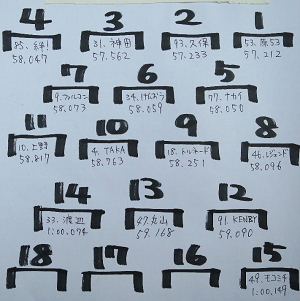 4 3 2 1
85. 純! 31. 神田 93. 久保 53. 原53
58.047 57.562 57.233 57.212
7 6 5
9. ファルコン 34. けんぞう 77. ナカイ
58.073 58.059 58.050
11 10 9 8
10. 上野 4. TAKA 18. トルネード 46. レジェンド
58.817 58.763 58.251 58.096
14 13 12
33. 渡辺 47. 丸山 91. KENBY
1:00.074 59.168 59.090
18 17 16 15
49. モコミチ
1:00.149